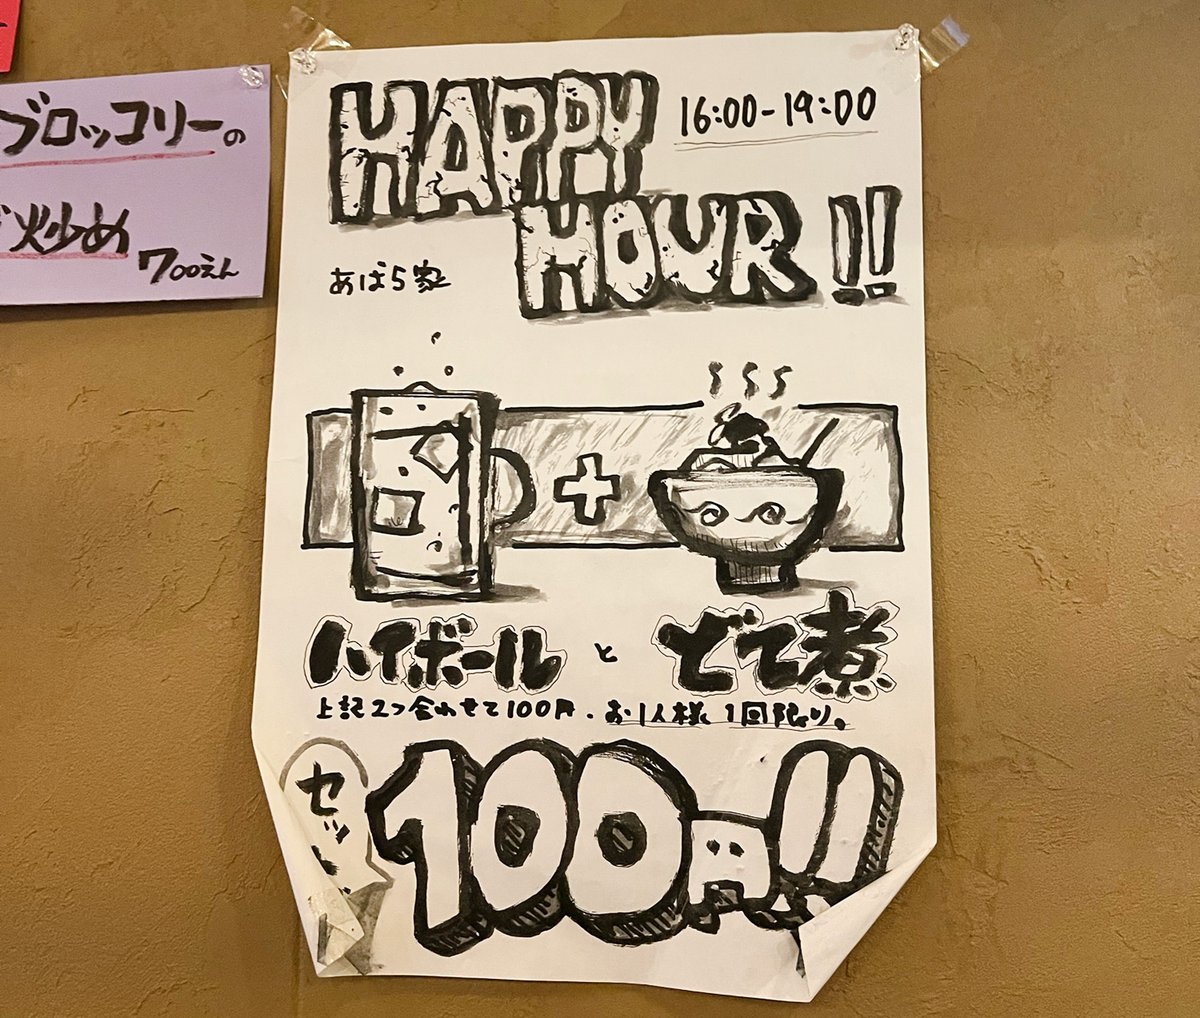 ブロッコリーの
炒め
700えん
HAPPY
16:00-19:00
HOUR!!
あばら家
ハイボール と どて煮
上記2つ合わせて100円. お1人様 1回限り。
セット
100円!!